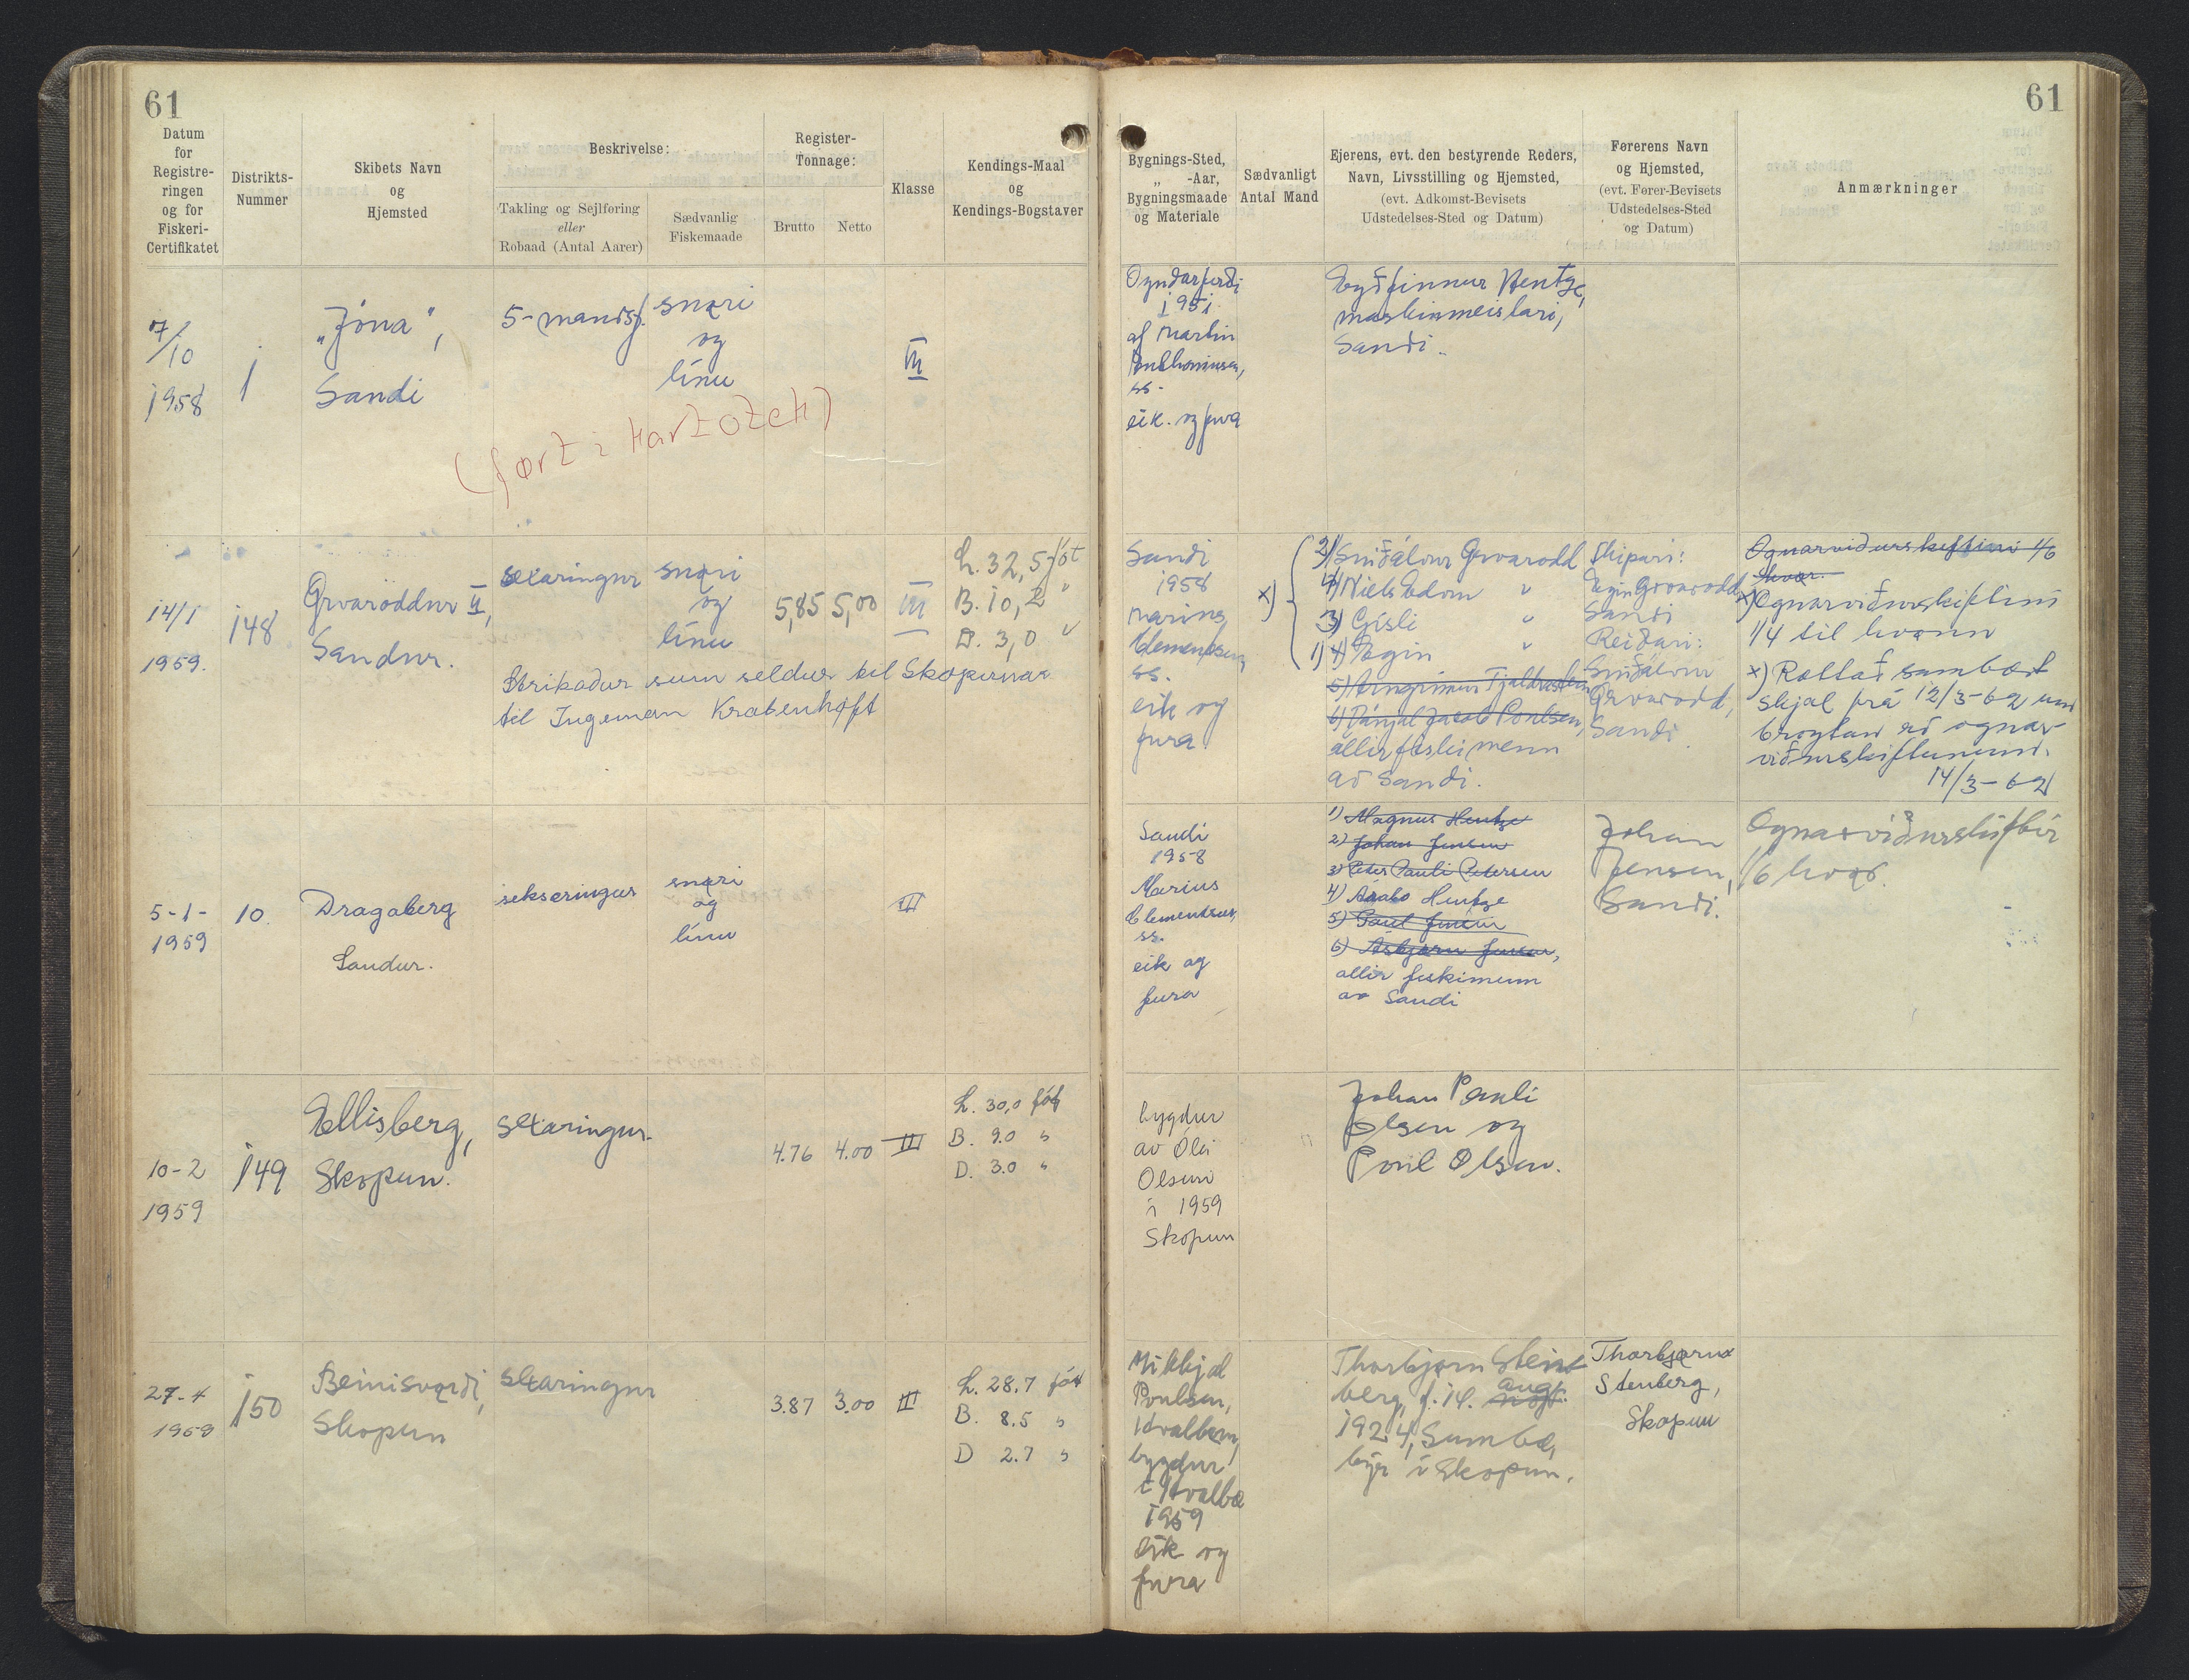 61
Datum
for
Registre-
ringen
og for
Fiskeri-
Certifikatet
Distrikts-
Nummer
Skibets Navn
og
Hjemsted
Beskrivelse:
Takling og Sejlføring
eller
Robaad (Antal Aarer)
Sædvanlig
Fiskemaade
Register-
Tonnage:
Brutto
Netto
Klasse
Kendings-Maal
og
Kendings-Bogstaver
7/10
1958
1
"Jóna",
Sandi
5-mansf.
snøri
og
línu
III
(ført i kartotek)
14/1
1959.
148
Grvaroddur II,
Sandur.
sexaringur
snøri
og
línu
5,85
5,00
III
L. 32,5 fót
B. 10,2 "
D. 3,0 "
Strikaður sum seldur til Skopunar
til Ingeman Krabenhøft
5-1-
1959
10.
Dragaberg
Sandur.
seksæringur
snøri
og
línu
III
10-2
1959
149
Ellisberg,
Skopun.
sexaringur.
4.76
4.00
III
L. 30,0 fót
B. 9.0 "
D. 3.0 "
27-4
1959
150
Beinisvørði,
Skopun
sexaringur
3.87
3.00
III
L. 28.7 fót
B. 8.5 "
D 2.7 "
61
Bygnings-Sted,
„ -Aar,
Bygningsmaade
og Materiale
Sædvanligt
Antal Mand
Ejerens, evt. den bestyrende Reders,
Navn, Livsstilling og Hjemsted,
(evt. Adkomst-Bevisets
Udstedelses-Sted og Datum)
Førerens Navn
og Hjemsted,
(evt. Fører-Bevisets
Udstedelses-Sted
og Datum)
Anmærkninger
Oyndarfirði
1951
af Martin
ss.
eik. og fura
Eyðfinnur Hentze,
maskinmeistari,
Sandi.
Sandi
1958
Marius
Clementsen,
ss.
eik og
fura
x)
2) Suðálvur Grvarodd
4) Niels Edvin "
3) Gísli "
1) 4) Egin "
5) Arngrímur Tjaldrastein
6) Dánjal Jacob Poulsen,
allir fiskimenn
av Sandi.
Skipari:
Egin Grvarodd,
Sandi
Reiðari:
Suðálvur
Grvarodd,
Sandi
Ognarviðurskiftini 1/6
hvør.
x) Ognarviðurskiftini
1/4 til hvønn
x) Rættað sambært
skjal frá 12/3-62 um
broytan av ognar-
viðurskiftunum.
14/3-62
Sandi
1958
Marius
Clementsen,
ss.
eik og
fura
1) Magnus Hentze
2) Johan Jensen
3) Peter Pauli Petersen
4) Hentze
5) Poul Jensen
6) Asbjørn Jensen,
allir fiskimenn
av Sandi
Johan
Jensen,
Sandi.
Ognarviðurskiftir
1/6 hvør.
bygdur
av Óla
Olsen
í 1959
Skopun
Johan Pauli
Olsen og
Poul Olsen.
Mikkjal
Poulsen,
Hvalbøm,
bygdur
í Hvalbø
1959
Eik og
fura
Thorbjørn Stein-
berg, f. 14. aug.
1924, Sumbø,
býr í Skopun.
Thorbjørn
Stenberg,
Skopun